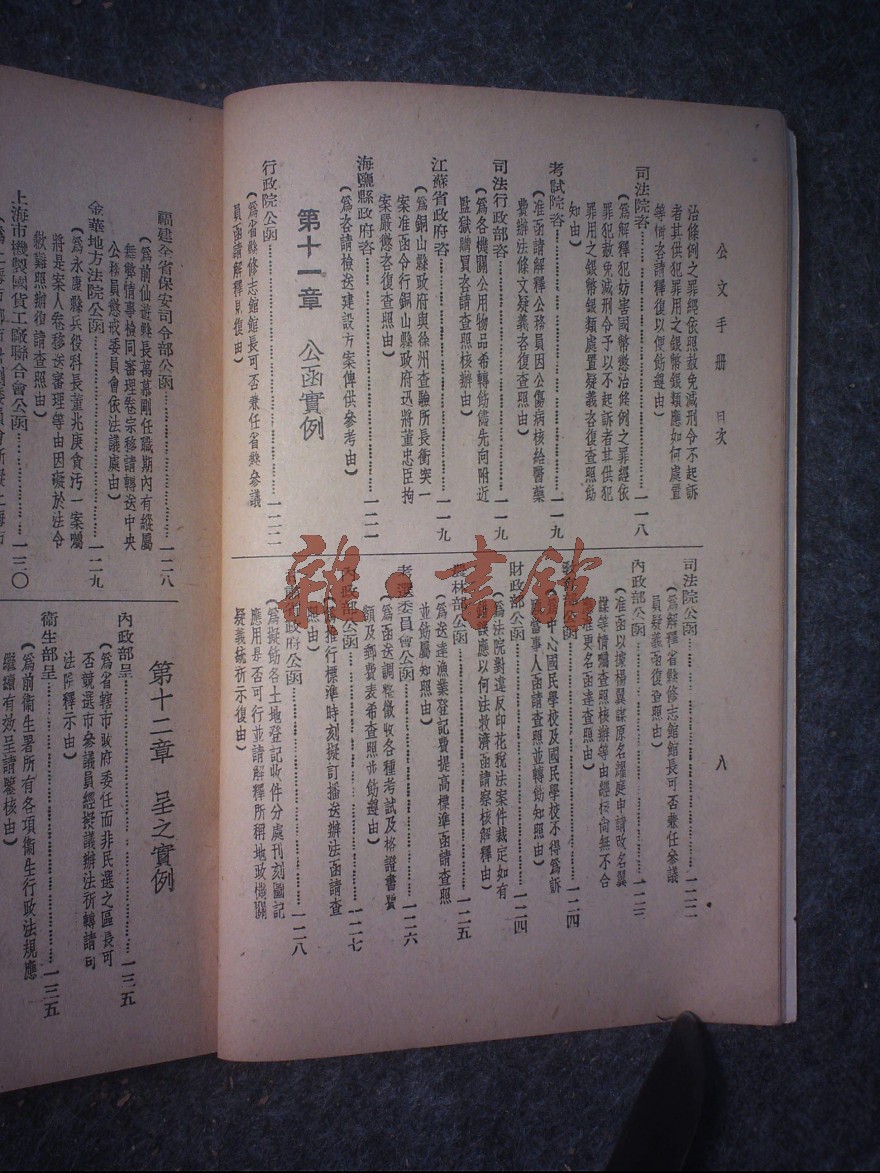 公文手册 目次
八
治條例之罪經依照赦免減刑令不起訴
者其供犯罪用之銀幣銀類應如何處置
等情咨請釋復以便飭遵由)
司法院咨……一一八
(爲解釋犯妨害國幣懲治條例之罪經依
罪犯赦免減刑令予以不起訴者其供犯
罪用之銀幣銀類處置疑義咨復查照飭
知由)
考試院咨……一一九
(准函請解釋公務員因公傷病核給醫藥
費辦法條文疑義咨復查照由)
司法行政部咨……一一九
(爲各機關公用物品希轉飭儘先向附近
監獄購買咨請查照核辦由)
江蘇省政府咨……一一九
(爲銅山縣政府與徐州查驗所長衝突一
案准函令行銅山縣政府迅將董忠臣拘
案嚴懲咨復查照由)
海鹽縣政府咨……一二一
(爲咨請檢送建設方案俾供參考由)
第十一章 公函實例
行政院公函……一二二
(爲省縣修志館館長可否兼任省縣參議
員函請解釋見復由)
司法院公函……一二二
(爲解釋省縣修志館館長可否兼任參議
員疑義函復查照由)
內政部公函……一二三
(准函以據楊翼謀原名躍庭申請改名翼
謀等情囑查照核辦等由經核尙無不合
准更名函達查照由)
教育部公函……一二四
中心國民學校及國民學校不得爲訴
當事人函請查照並轉飭知照由)
財政部公函……一二四
(爲法院對違反印花稅法案件裁定如有
錯誤應以何法救濟函請察核解釋由)
農林部公函……一二五
(爲送達漁業登記費提高標準函請查照
並飭屬知照由)
考選委員會公函……一二六
(爲函送調整徵收各種考試及格證書費
額及郵費表希查照並飭遵由)
內政部公函……一二七
推行標準時刻擬訂播送辦法函請查
照由)
省政府公函……一二八
(爲擬飭各土地登記收件分處刊刻圖記
應用是否可行並請解釋所稱地政機關
疑義統祈示復由)
福建全省保安司令部公函……一二八
(爲前仙遊縣長萬慕剛任職期內有縱屬
舞弊情事檢同審理卷宗移請轉送中央
公務員懲戒委員會依法議處由)
金華地方法院公函……一二九
(爲永康縣兵役科長董兆庚貪污一案囑
將是案人卷移送審理等由因礙於法令
救難照辦復請查照由)
上海市機製國貨工廠聯合會公函……一三〇
第十二章 呈之實例
內政部呈……一三五
(爲省轄市政府委任而非民選之區長可
否競選市參議員經擬議辦法祈轉請司
法院釋示由)
衞生部呈……一三五
(爲前衞生署所有各項衞生行政法規應
繼續有效呈請鑒核由)
雜·書館